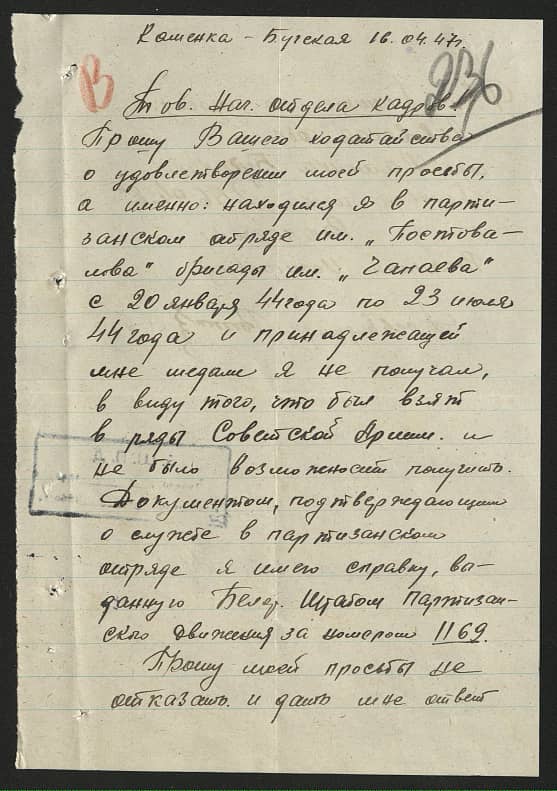 Каменка – Бугская 16.04.47г.
В
236
Тов. Нач. отдела кадров.
Прошу Вашего ходатайства
о удовлетворении моей просьбы,
а именно: находился я в парти-
занском отряде им. „Постова-
лова" бригады им. „Чапаева"
с 20 января 44 года по 23 июля
44 года и принадлежащей
мне медали я не получал,
в виду того, что был взят
в ряды Советской Армии. и
не было возможности получить.
Документом, подтверждающим
о службе в партизанском
отряде я имею справку, вы-
данную Белор. Штабом Партизан-
ского движения за номером 1169.
Прошу моей просьбы не
отказать и дать мне ответ